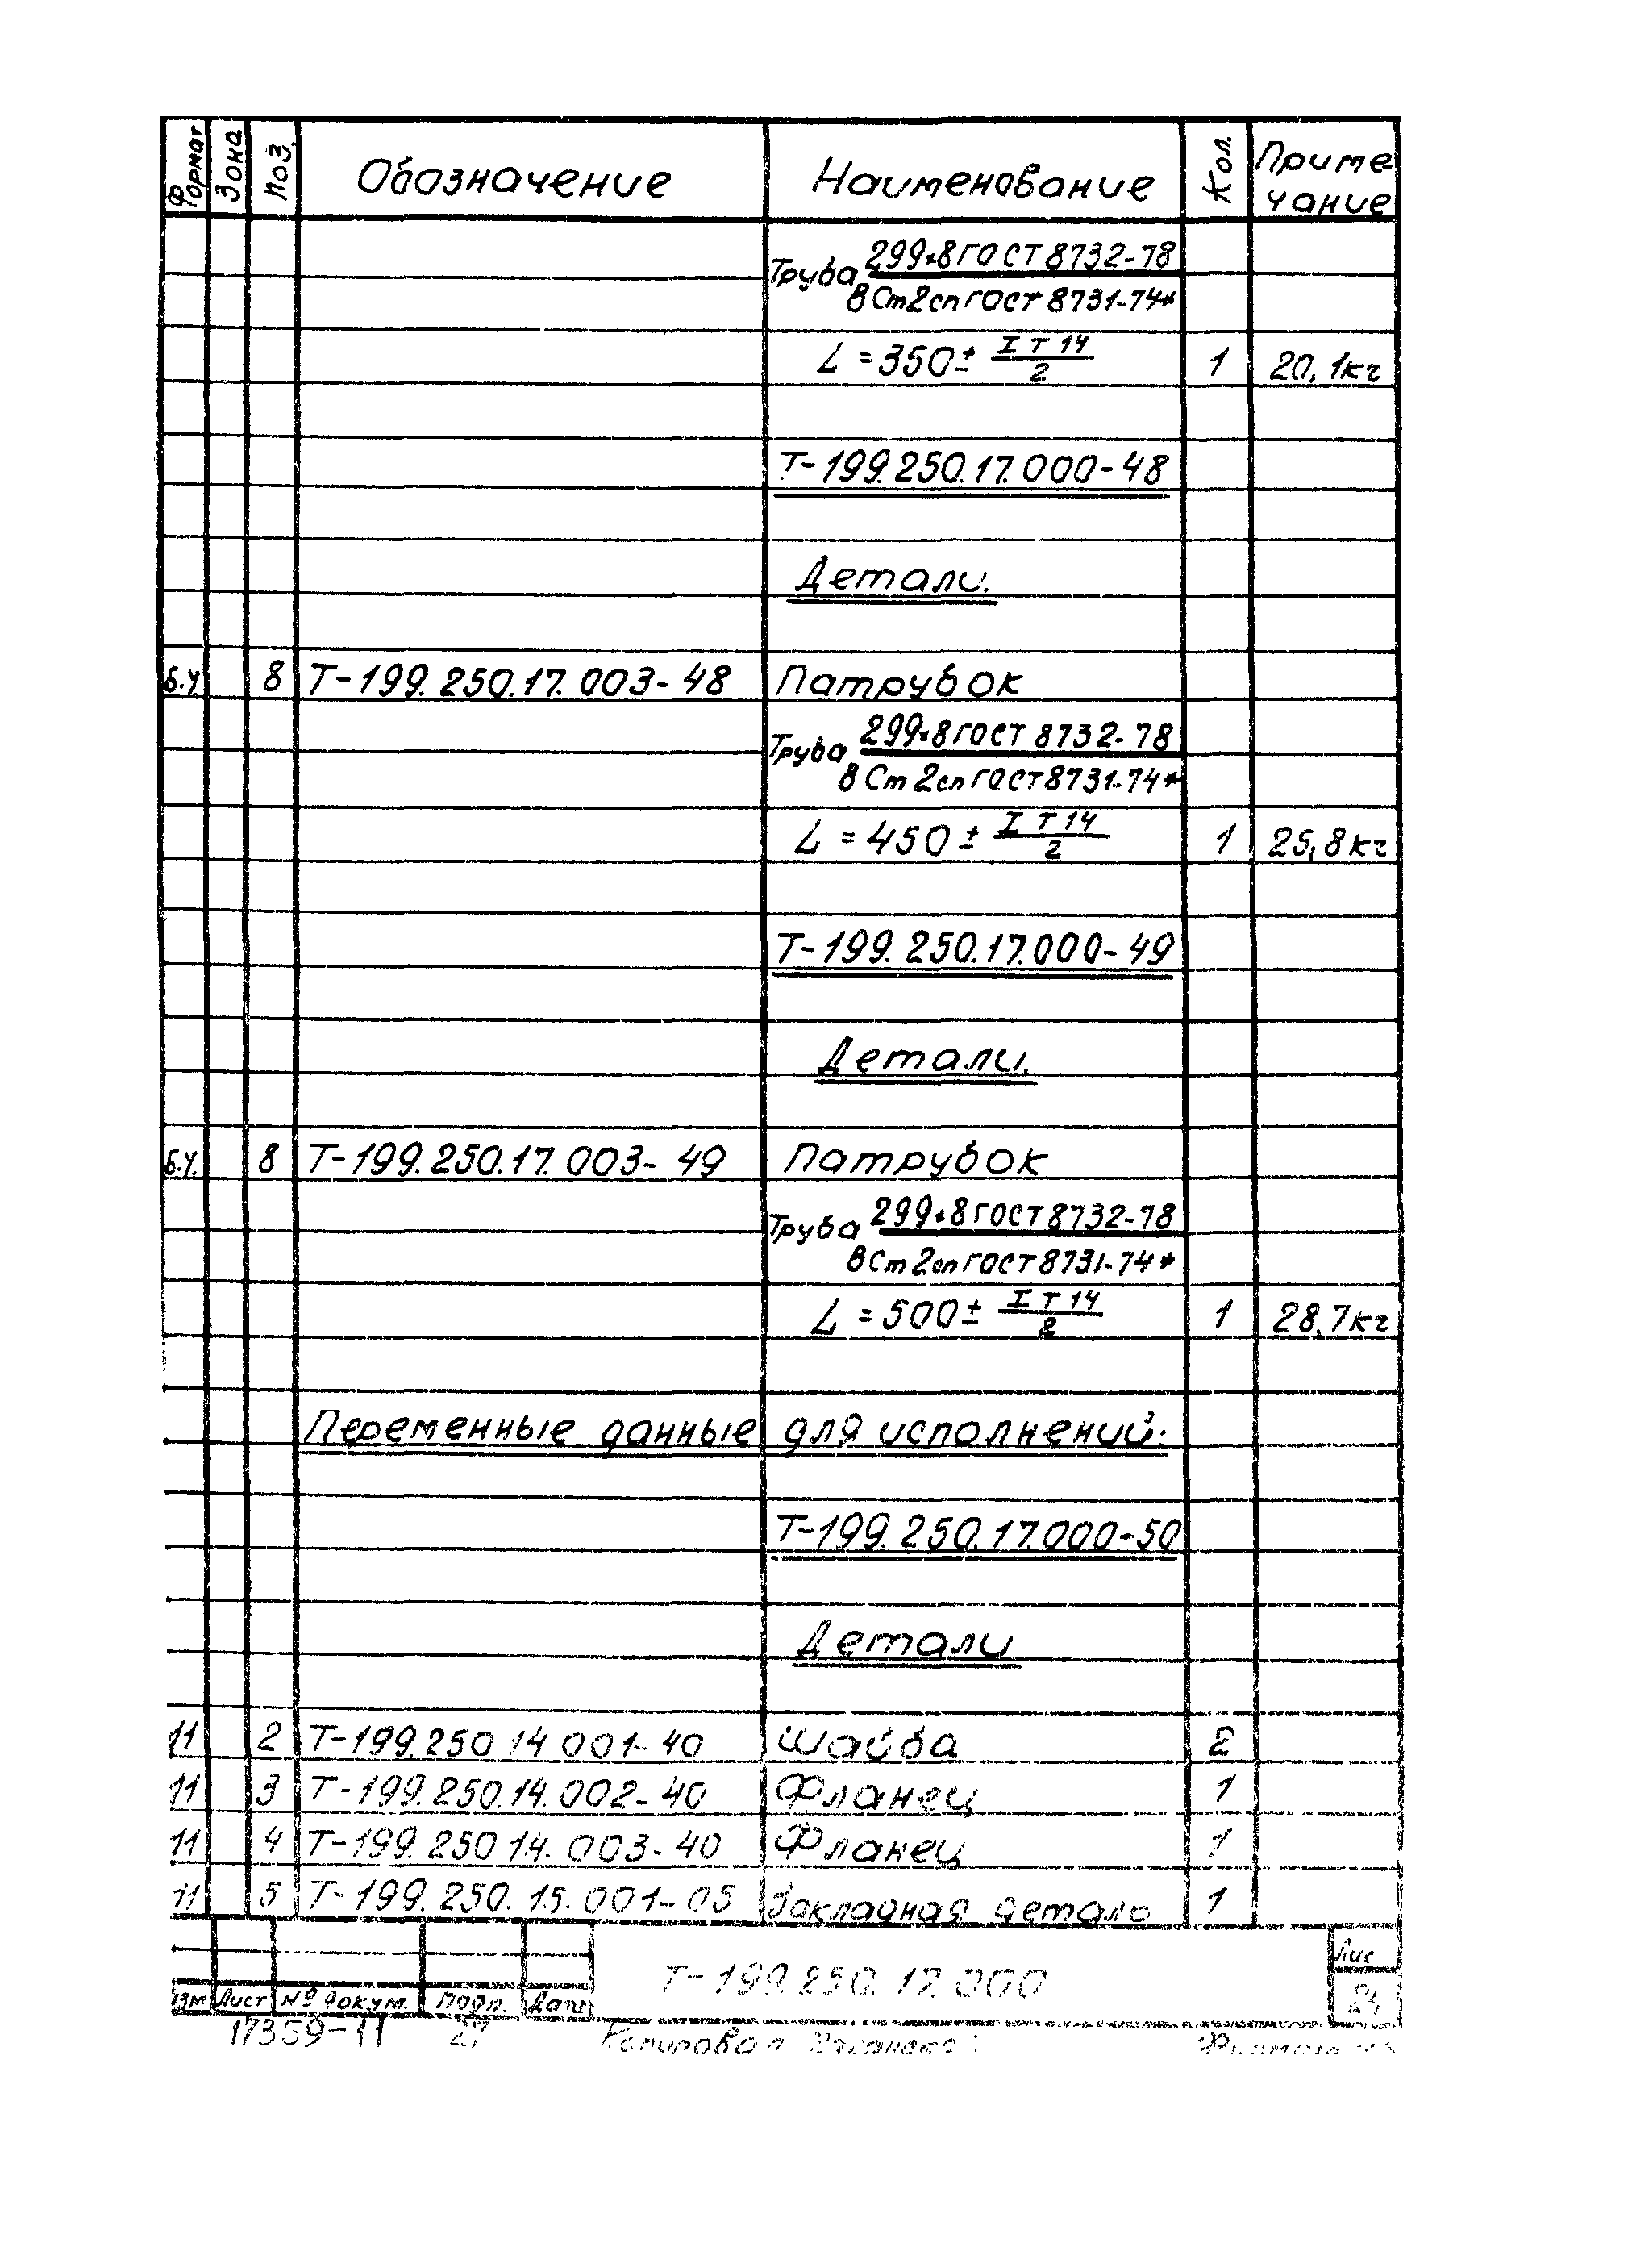 Формат Зона Поз. Обозначение Наименование Кол. Приме-
чание
Труба 299×8 ГОСТ 8732-78
ВСт2сп ГОСТ 8731-74*
L = 350 ± IT14/2 1 20,1кг
Т-199.250.17.000-48
Детали.
Б.Ч 8 Т-199.250.17.003-48 Патрубок
Труба 299×8 ГОСТ 8732-78
ВСт2сп ГОСТ 8731-74*
L = 450 ± IT14/2 1 25,8кг
Т-199.250.17.000-49
Детали.
Б.Ч. 8 Т-199.250.17.003-49 Патрубок
Труба 299×8 ГОСТ 8732-78
ВСт2сп ГОСТ 8731-74*
L = 500 ± IT14/2 1 28,7кг
Переменные данные для исполнений:
Т-199.250.17.000-50
Детали
11 2 Т-199.250 14 001-40 Шайба 2
11 3 Т-199.250.14.002-40 Фланец 1
11 4 Т-199.250 14.003-40 Фланец 1
11 5 Т-199.250.15.001-05 Закладная деталь 1
Лис
Изм Лист № докум. Подп. Дата Т-199.250.17.000 24
17359-11 27 Копировал Формат